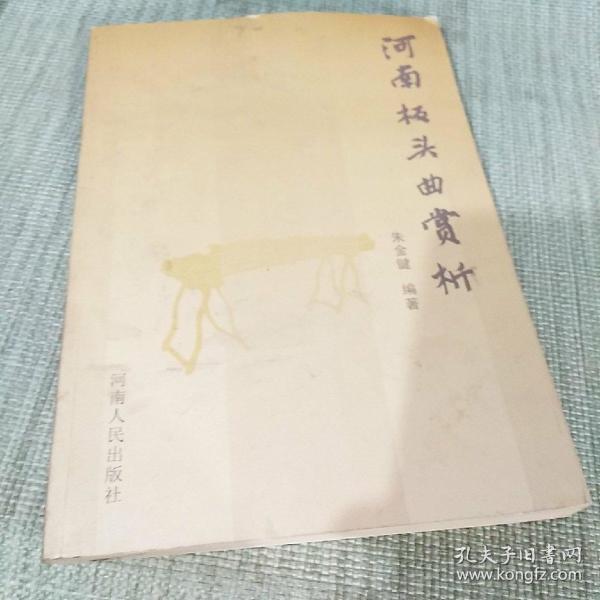 河南板头曲赏析
朱金键 编著
河南人民出版社
孔夫子旧書网
www.kongfz.com